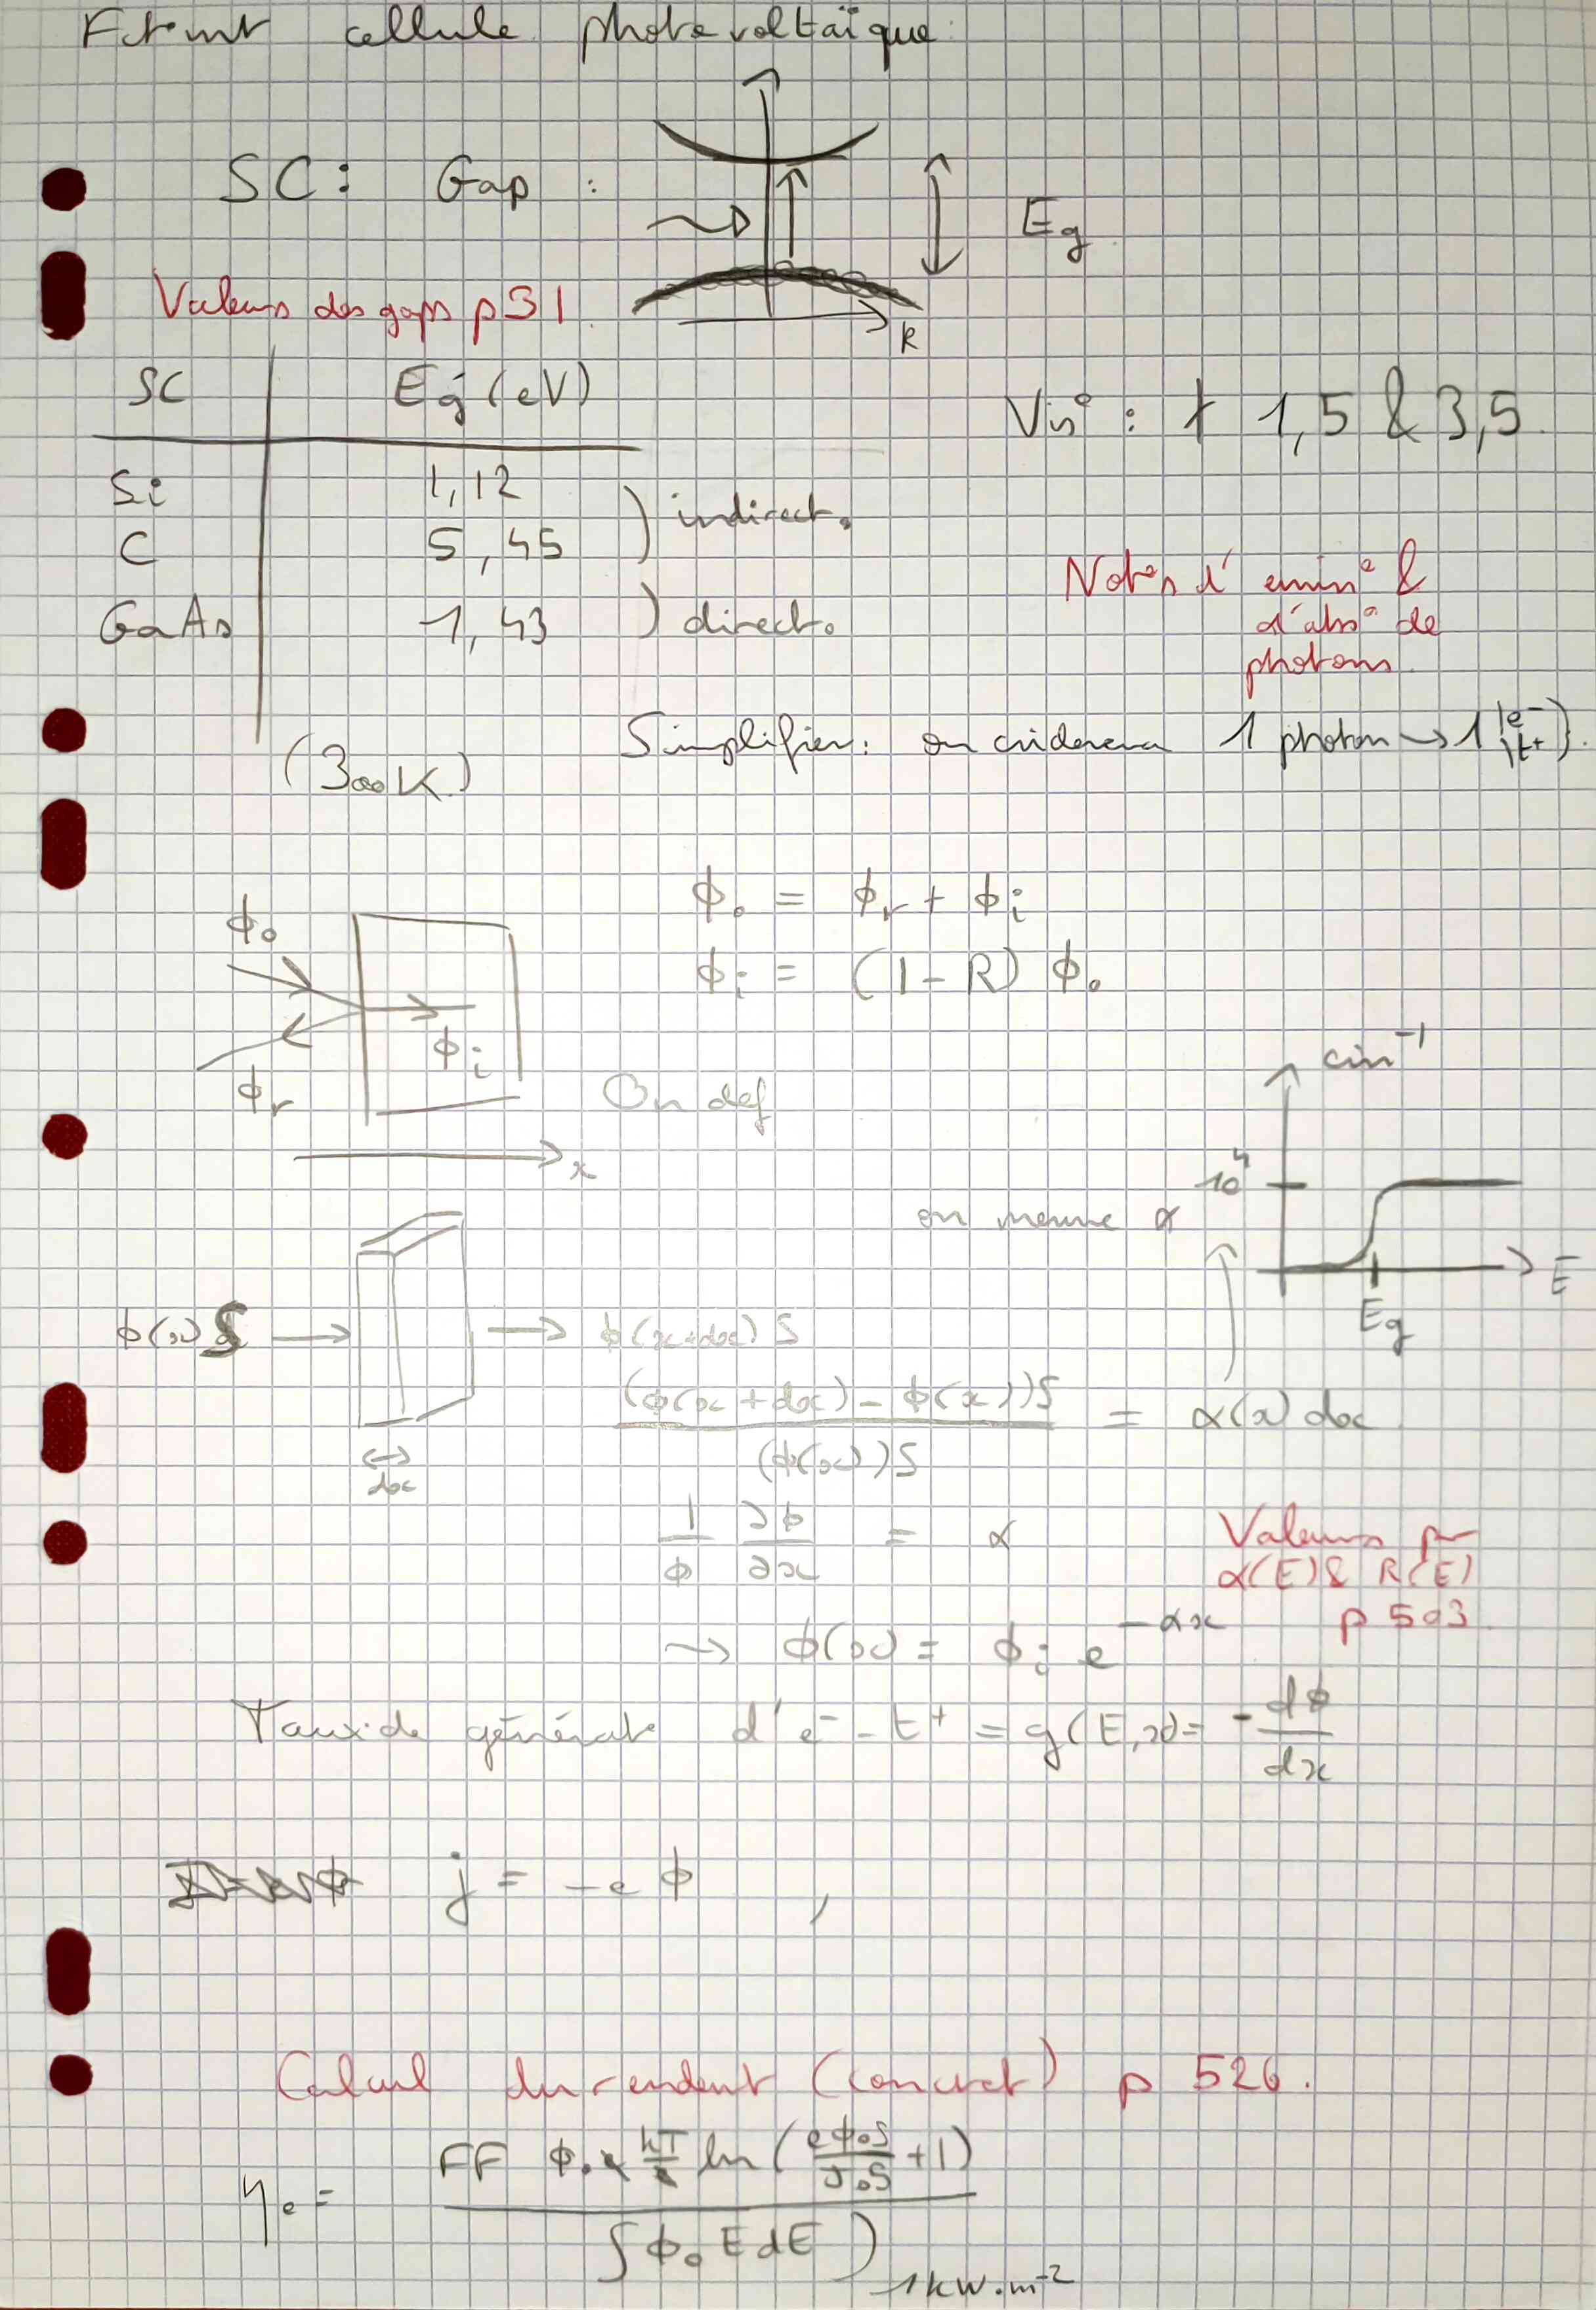 Fct°mt cellule photovoltaïque
SC : Gap :
Eg
k
Valeurs des gaps p 31
SC Eg (eV)
Vis° : ∤ 1,5 & 3,5
Si 1,12
C 5,45
) indirect.
GaAs 1,43 ) direct.
Not°s d' émiss° &
d'abs° de
photons.
(300K)
Simplifier : on considerera 1 photon → 1 {e- t+}.
ϕ₀ = ϕr + ϕi
ϕi = (1 - R) ϕ₀
ϕ₀
ϕi
ϕr
x
On def
cm⁻¹
10⁴
E
Eg
on mesure α
ϕ(x) S → → ϕ(x+dx) S
dx
(ϕ(x+dx) - ϕ(x))S / (ϕ(x))S = α(x) dx
1/ϕ ∂ϕ/∂x = α
Valeurs pr
α(E) & R(E)
p 503.
→ ϕ(x) = ϕi e^-αx
Taux de générat° d' e⁻ - t⁺ = g(E,x) = - dϕ/dx
j = -e ϕ ,
Calcul du rendemt (concret) p 526.
ηe = FF ϕ₀ kT/e ln(eϕ₀S/J₀S + 1) / ∫ϕ₀ E dE ) 1kW.m⁻²